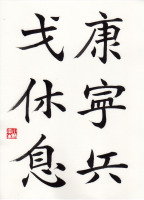 康寧兵
戈休息